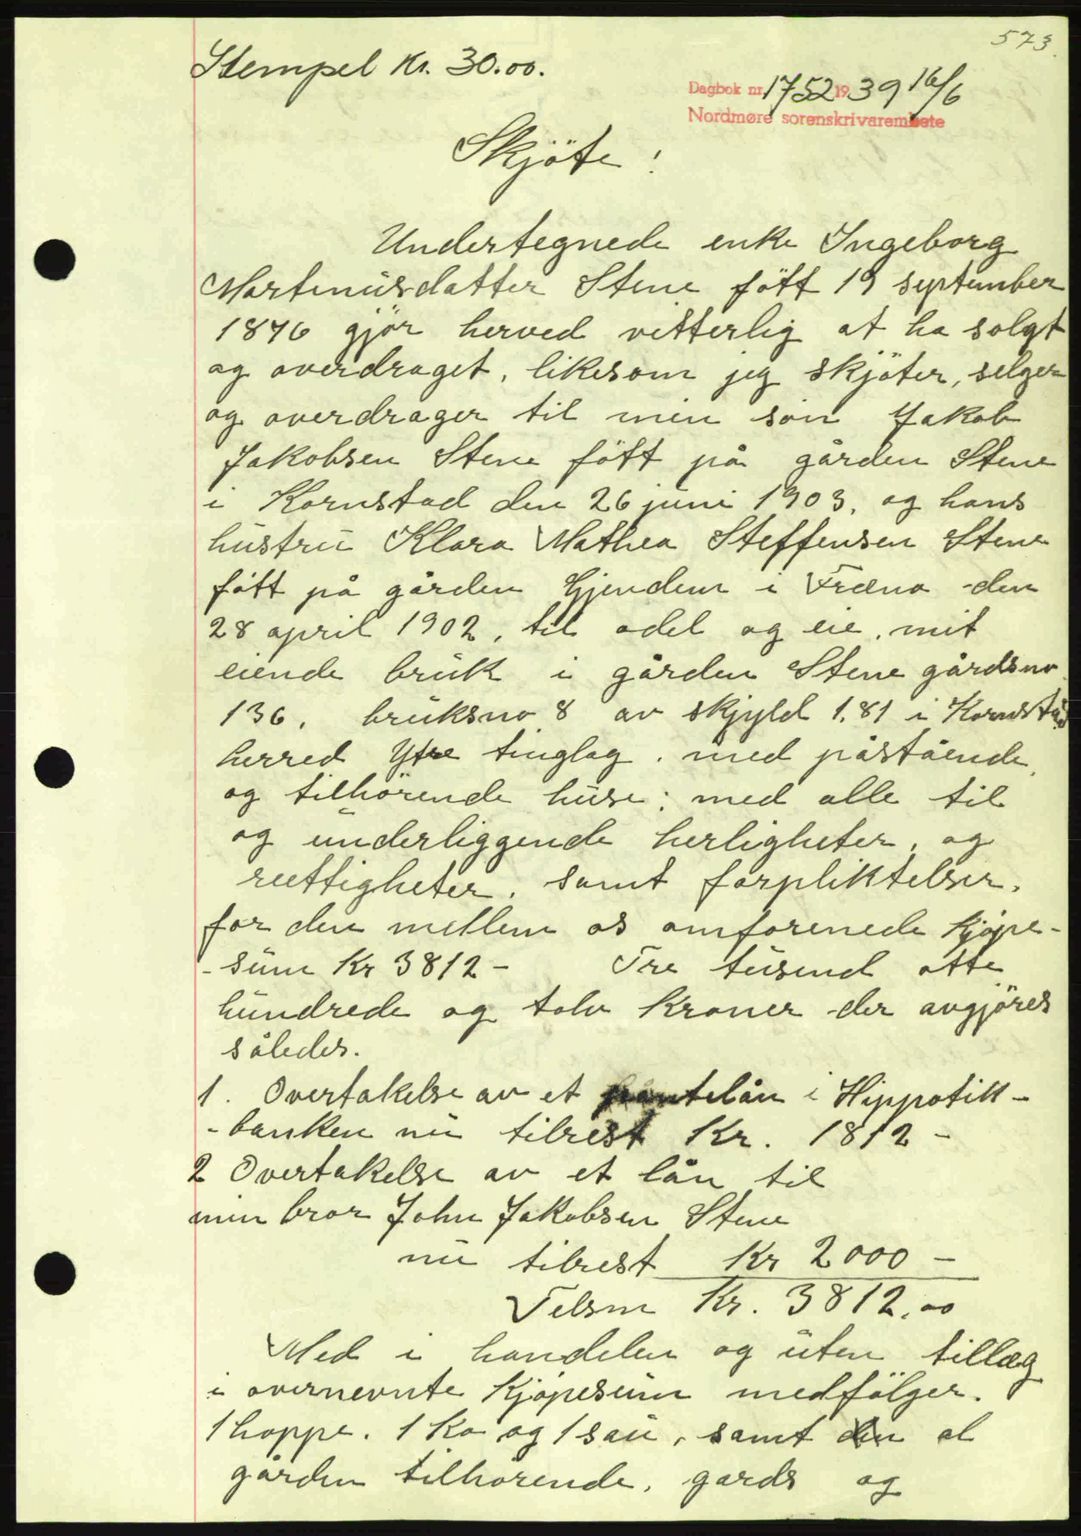 573.
Stempel Kr. 30.00.
Dagbok nr. 1752 1939 16/6
Nordmøre sorenskrivarembete
Skjöte!
Undertegnede enke Ingeborg
Martinusdatter Stene fött 19 september
1876 gjör herved vitterlig at ha solgt
og overdraget, likesom jeg skjöter, selger
og overdrager til min sön Jakob
Jakobsen Stene fött på gården Stene
i Kornstad den 26 juni 1903, og hans
hustru Klara Mathea Steffensen Stene
fött på gården Gjendem i Fræna den
28 april 1902, til odel og eie, mit
eiende bruk i gården Stene gårdsno
136, bruksno 8 av skjyld 1.81 i Kornstad
herred Ytre tinglag, med påstående
og tilhörende huse; med alle til
og underliggende herligheter, og
rettigheter, samt forpliktelser,
for den mellem os omforenede kjöpe-
-sum Kr 3812- Tre tusend otte
hundrede og tolv kroner der avgjöres
således.
1. Overtakelse av et pantelån i Hippotikk-
-banken nu tilrest Kr. 1812-
2 Overtakelse av et lån til
min bror John Jakobsen Stene
nu tilrest Kr 2000-
Tilsm Kr. 3812.00
Med i handelen og uten tillæg
i overnevnte kjöpesum medfölger.
1 hoppe. 1 Ko og 1 sau, samt al
gården tilhörende, gards og